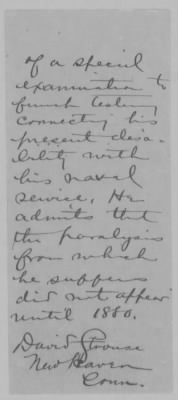 of a special
examination to
furnish testimony
connecting his
present disa-
bility with
his naval
service. He
admits that
the paralysis
from which
he suffers
did not appear
until 1880.
David Strouse
New Haven
Conn.